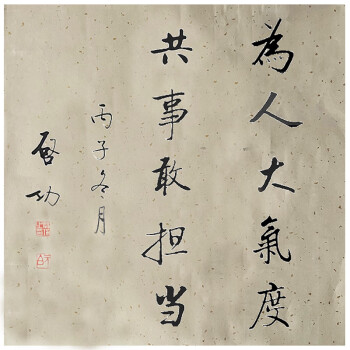 為人大氣度
共事敢担当
丙子冬月
啓功